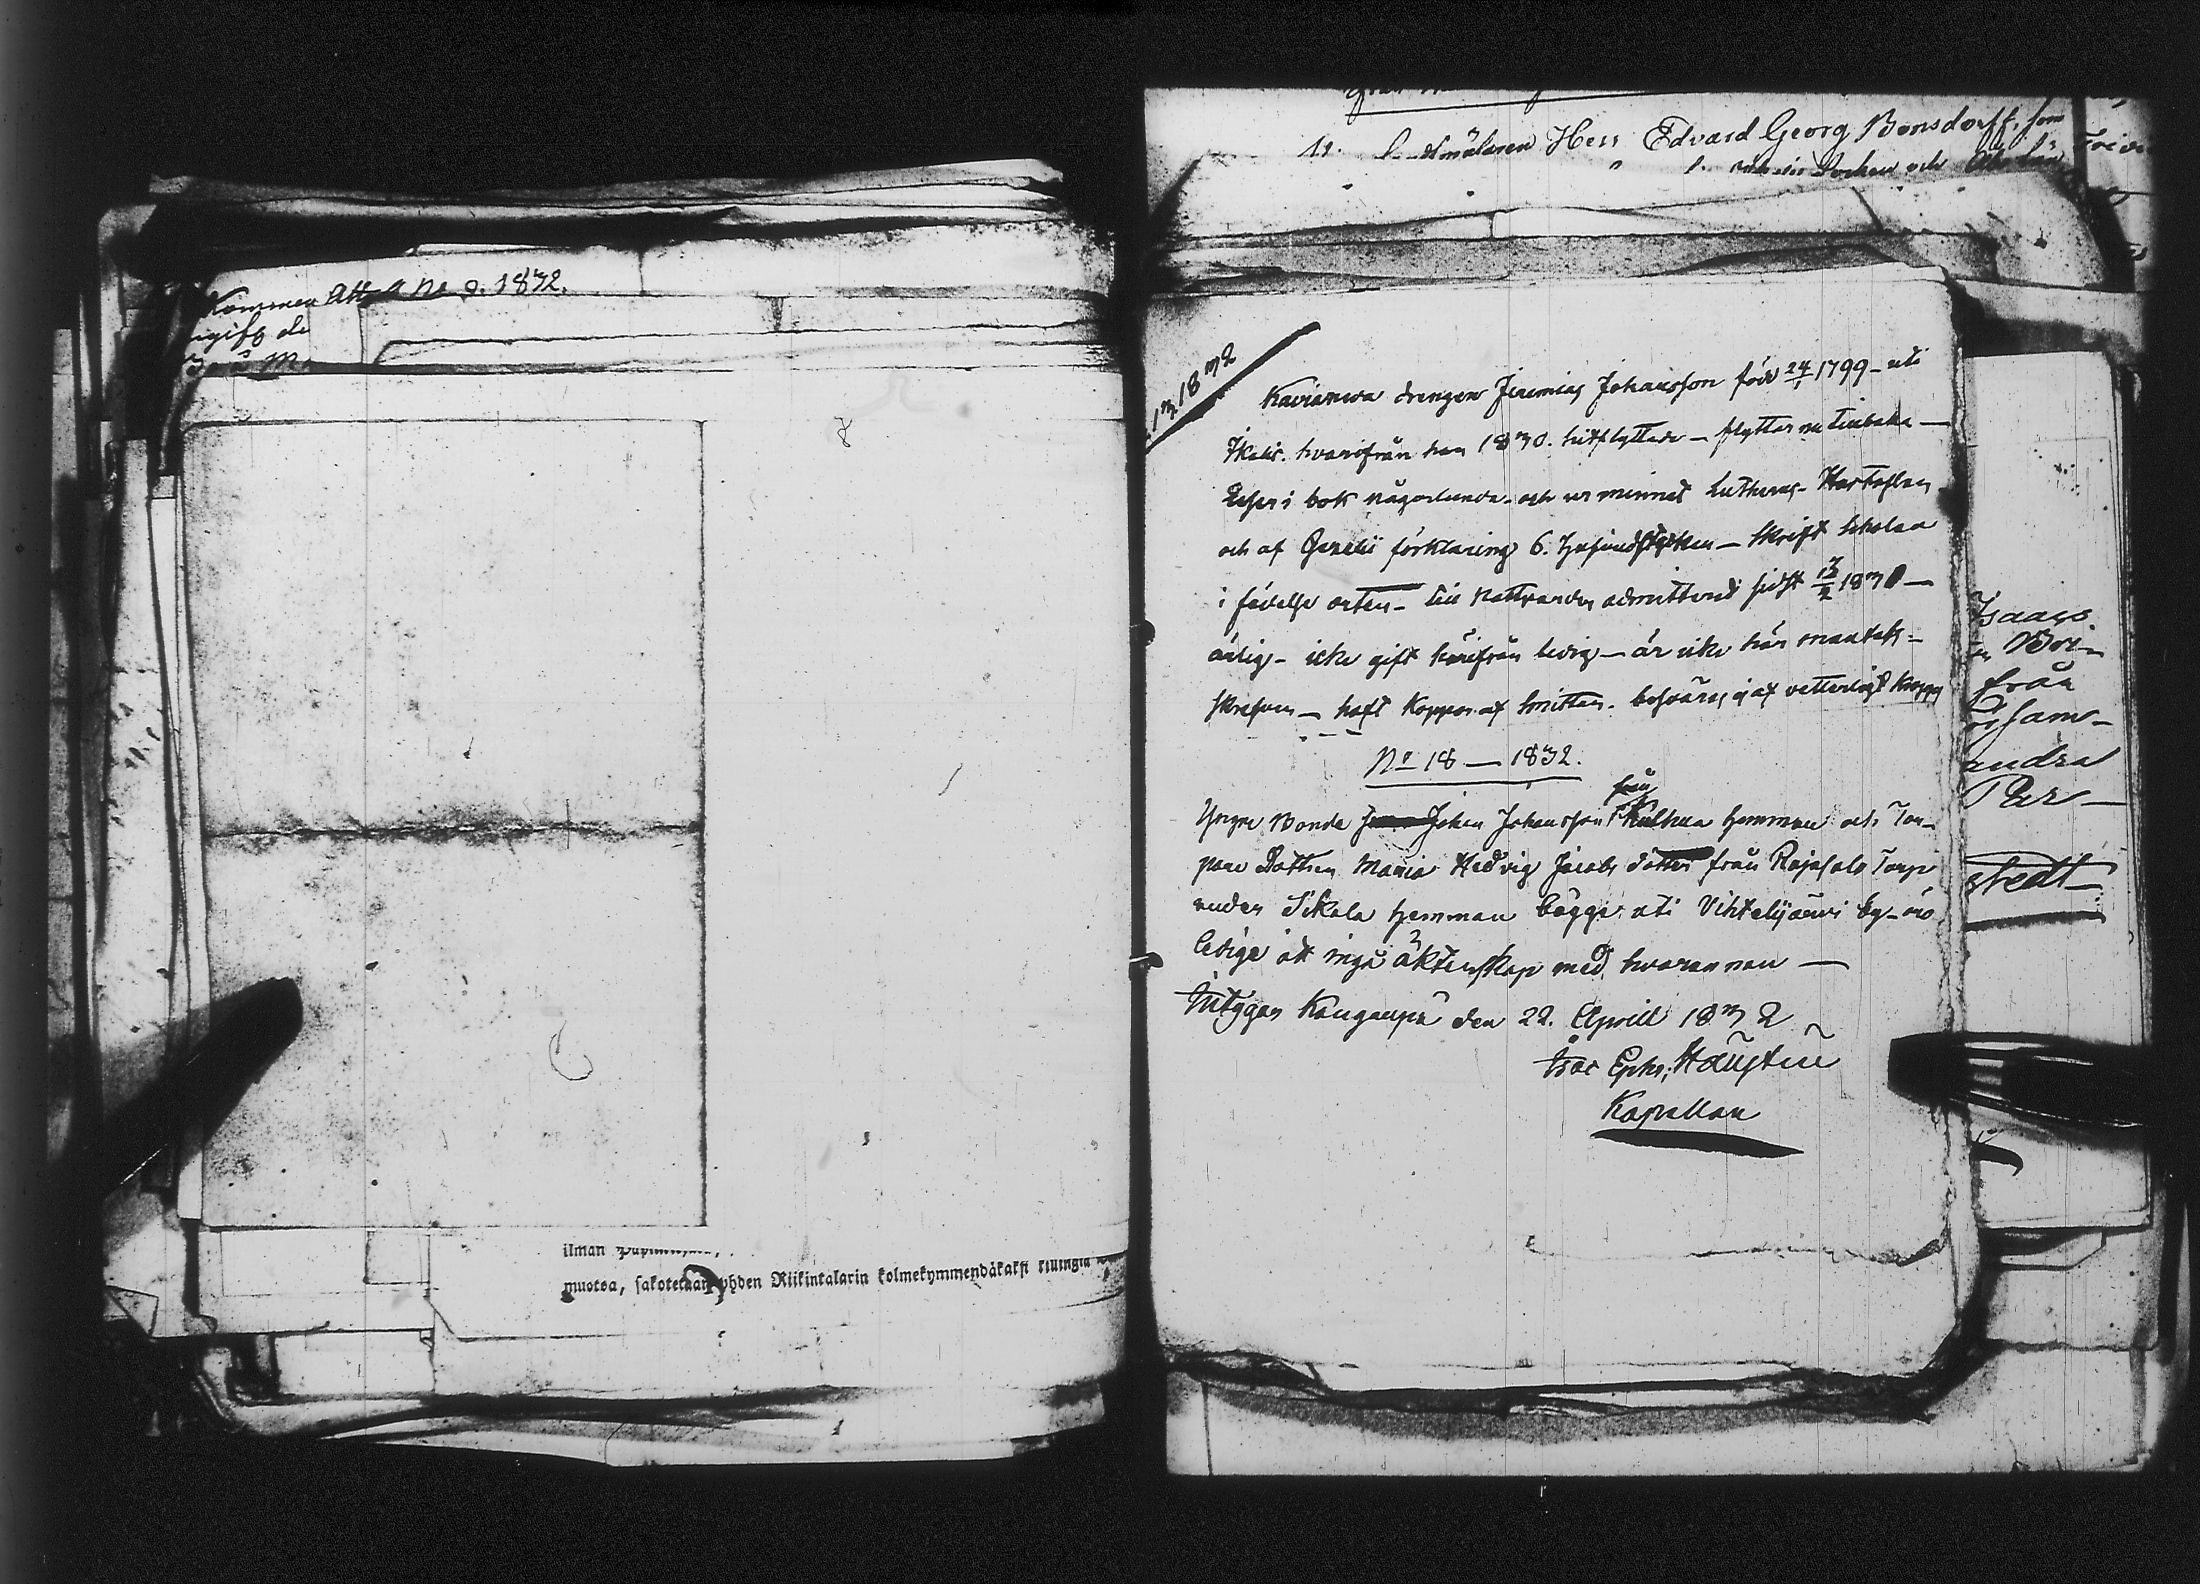 Kommer Att a No 9. 1832.
ilman
muotoa, sakotetaan yhden Riikintalarin kolmekymmendäkaksi
Herr Edvard Georg Bonsdorff, som
Socken och
13 1832
Kavianwa drengen Jeremias Johansson född 24/1 1799 - uti
Ikalis. hvarifrån han 1830. hitflyttade - flyttar nu tilbaka -
Läser i bok någorlunda - och ur minnet Lutherus - Hustaflan
och af Gezelii förklaring 6. Hufvudstycken - Skrift skolan
i födelse orten - till Nattvarden admitterad sidst 13/2 1831 -
ärlig - icke gift härifrån ledig - är icke här mantals-
skrefven - haft Koppor. af smittan. besväras ej af vetterligt
No 18 - 1832.
Yngre Bonde Johan Johansson från Kulhua hemman och Tor-
pare Dottren Maria Hedvig Jacobs dotter från Rajasalo Torp
under Sikala hemman bägge uti Vihteljärvi by - äro
ledige att ingå Äktenskap med hvarannan -
Intygar Kangaspä den 22. Aprill 1832
Isac Ephr;
Kapellan
Isaacs
från
andra
Per -
stedt